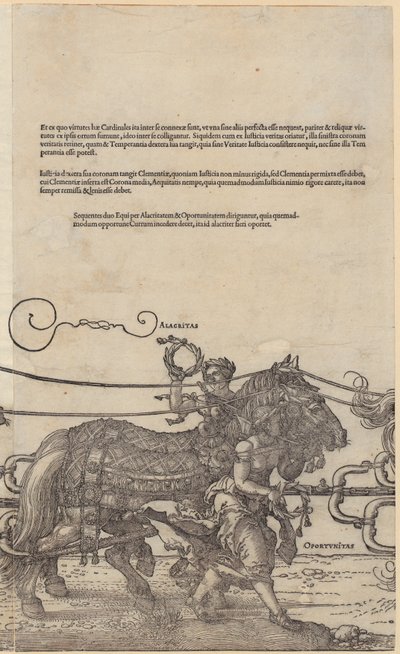 Et ex quo virtutes hæ Cardinales ita inter se connexæ sunt, vt vna sine aliis perfecta esse nequeat, pariter & reliquæ vir-
tutes ex ipsis ortum sumunt, ideo inter se colligantur. Siquidem cum ex Iusticia veritas oriatur, illa sinistra coronam
veritatis retinet, quam & Temperantia dextera sua tangit, quia sine Veritate Iusticia consistere nequit, nec sine illa Tem
perantia esse potest.
Iusticia dextera sua coronam tangit Clementiæ, quoniam Iusticia non nimis rigida, sed Clementia permixta esse debet,
cui Clementiæ inserta est Corona media, Aequitatis nempe, quia quemadmodum Iusticia nimio rigore carere, ita non
semper remissa & lenis esse debet.
Sequentes duo Equi per Alacritatem & Oportunitatem diriguntur, quia quemad-
modum opportune Currum incedere decet, ita id alacriter fieri oportet.
ALACRITAS
OPORTVNITAS